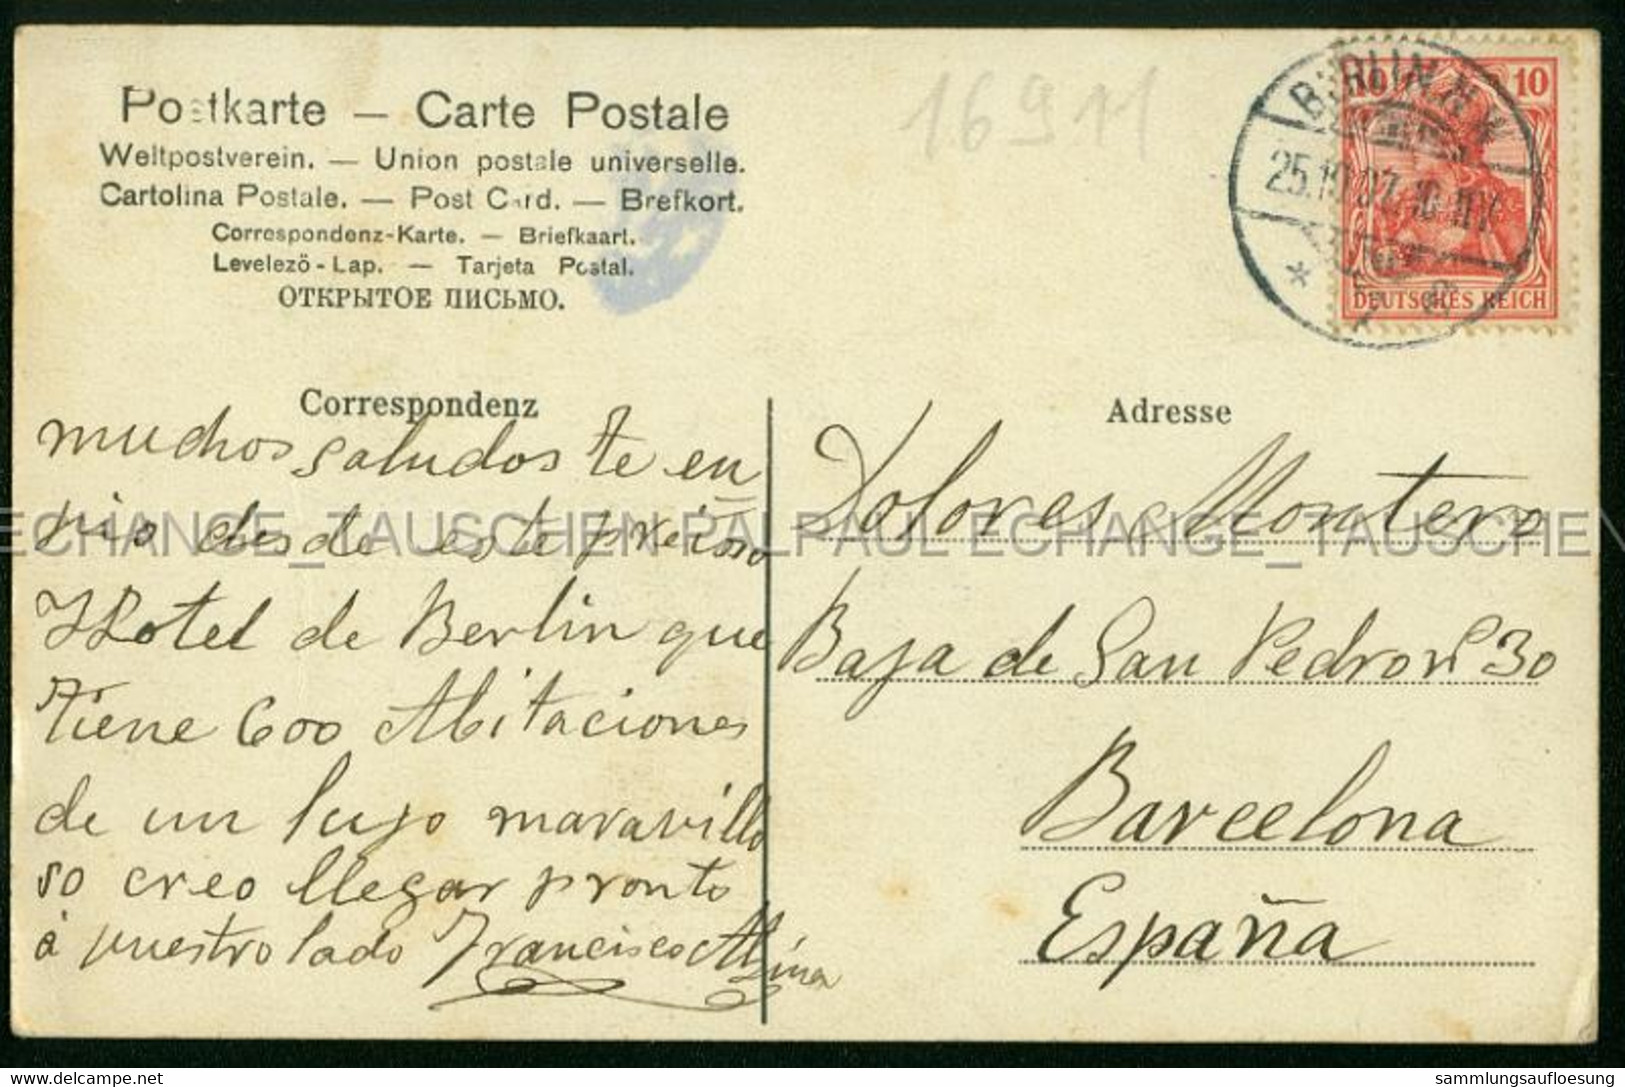 Postkarte — Carte Postale
Weltpostverein. — Union postale universelle.
Cartolina Postale. — Post Card. — Brefkort.
Correspondenz-Karte. — Briefkaart.
Levelező-Lap. — Tarjeta Postal.
ОТКРЫТОЕ ПИСЬМО.
16911
BERLIN.N
25.10.07.10-11V.
10
DEUTSCHES REICH
Correspondenz
muchos saludos te en
bio desde este precioso
Hotel de Berlin que
tiene 600 Abitaciones
de un lujo maravillo
so creo llegar pronto
á vuestro lado Francisco
Adresse
Dolores Montero
Baja de San Pedro nº 30
Barcelona
España
ECHANGE_TAUSCHEN PALPAUL ECHANGE_TAUSCHEN
www.delcampe.net
sammlungsaufloesung